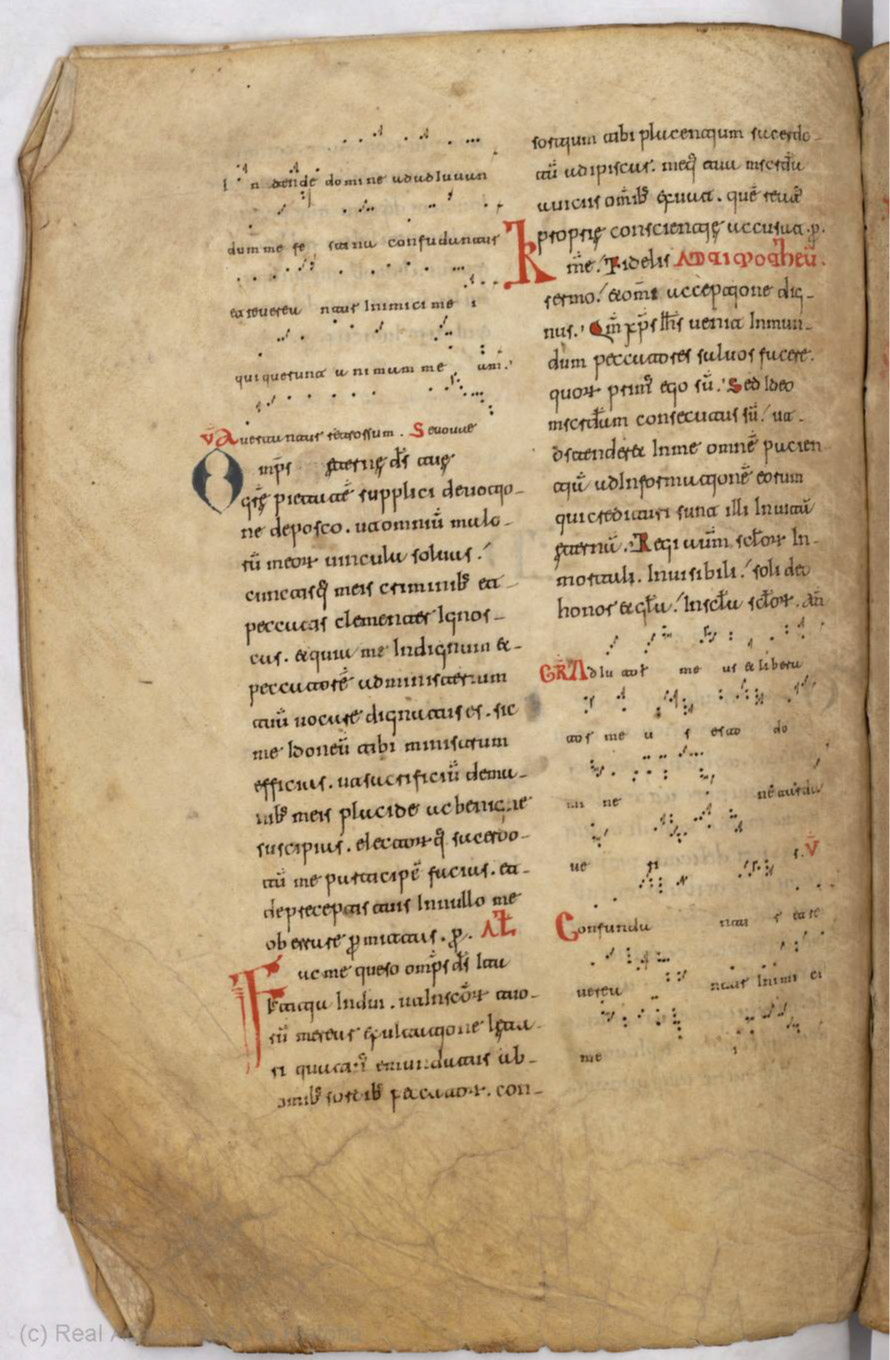 In tende domine ad adiuuan
dum me re uertantur confundantur
et reuerean tur Inimici me i
qui querunt a ni mam me am.
V Auertantur retrorsum. Seuouae
Omps ęterne ds tuę
qrę pietatē supplici deuotio-
ne deposco. ut omniū malo-
rū meor uincula soluas.
cunctisq meis criminib et
peccatis clementer Ignos-
cas. et quia me Indignum et
peccatorē ad ministerium
tuū uocare dignatus es. sic
me Idoneū tibi ministrum
efficias. ut sacrificiū de ma-
nib meis placide ac benigne
suscipias. electorq sacerdo-
tū me participē facias. et
de preceptis tuis In nullo me
oberrare pmittas. p. AL
Fac me queso omps ds Ita
Iustitia Indui. ut In scōr tuo-
rū merear exultatione lęta-
ri quatin emundatus ab
omib sordib peccator. con-
sortium tibi placentium sacerdo-
tū adipiscar. meq tua mscrda
a uitiis omib exuat. quē reatus
proprię conscientię accusat. p.
Kme. Fidelis AD TIMOTHEU.
sermo. et omi acceptione dig-
nus. Qm xps Ihs uenit In mun-
dum peccatores saluos facere.
quor primus ego sū. Sed Ideo
mscrdam consecutus sū. ut
ostenderet In me omnē patien
tiā. ad Informationē eorum
qui credituri sunt illi In uitā
ęternā. Regi autm sclor In-
mortali. Inuisibili. soli deo
honor et gla. In scla sclor. am
GR Adiu tor me us et libera
tor me u s esto do
mi ne ne tarda
ue ris. V
Confunda ntur et re
uerea ntur Inimi ci
me
(c) Real Academia de la Historia